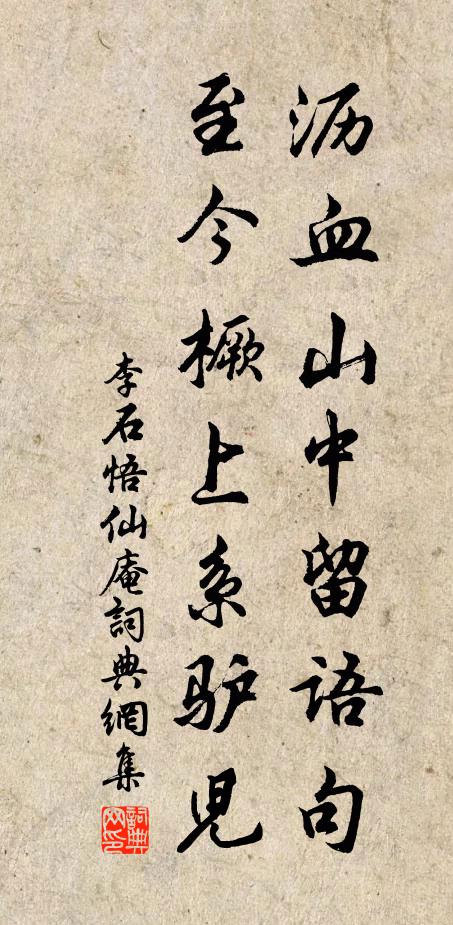 沥血山中留语句
至今橛上系驴児
李石悟仙庵詞典網集
詞典網印